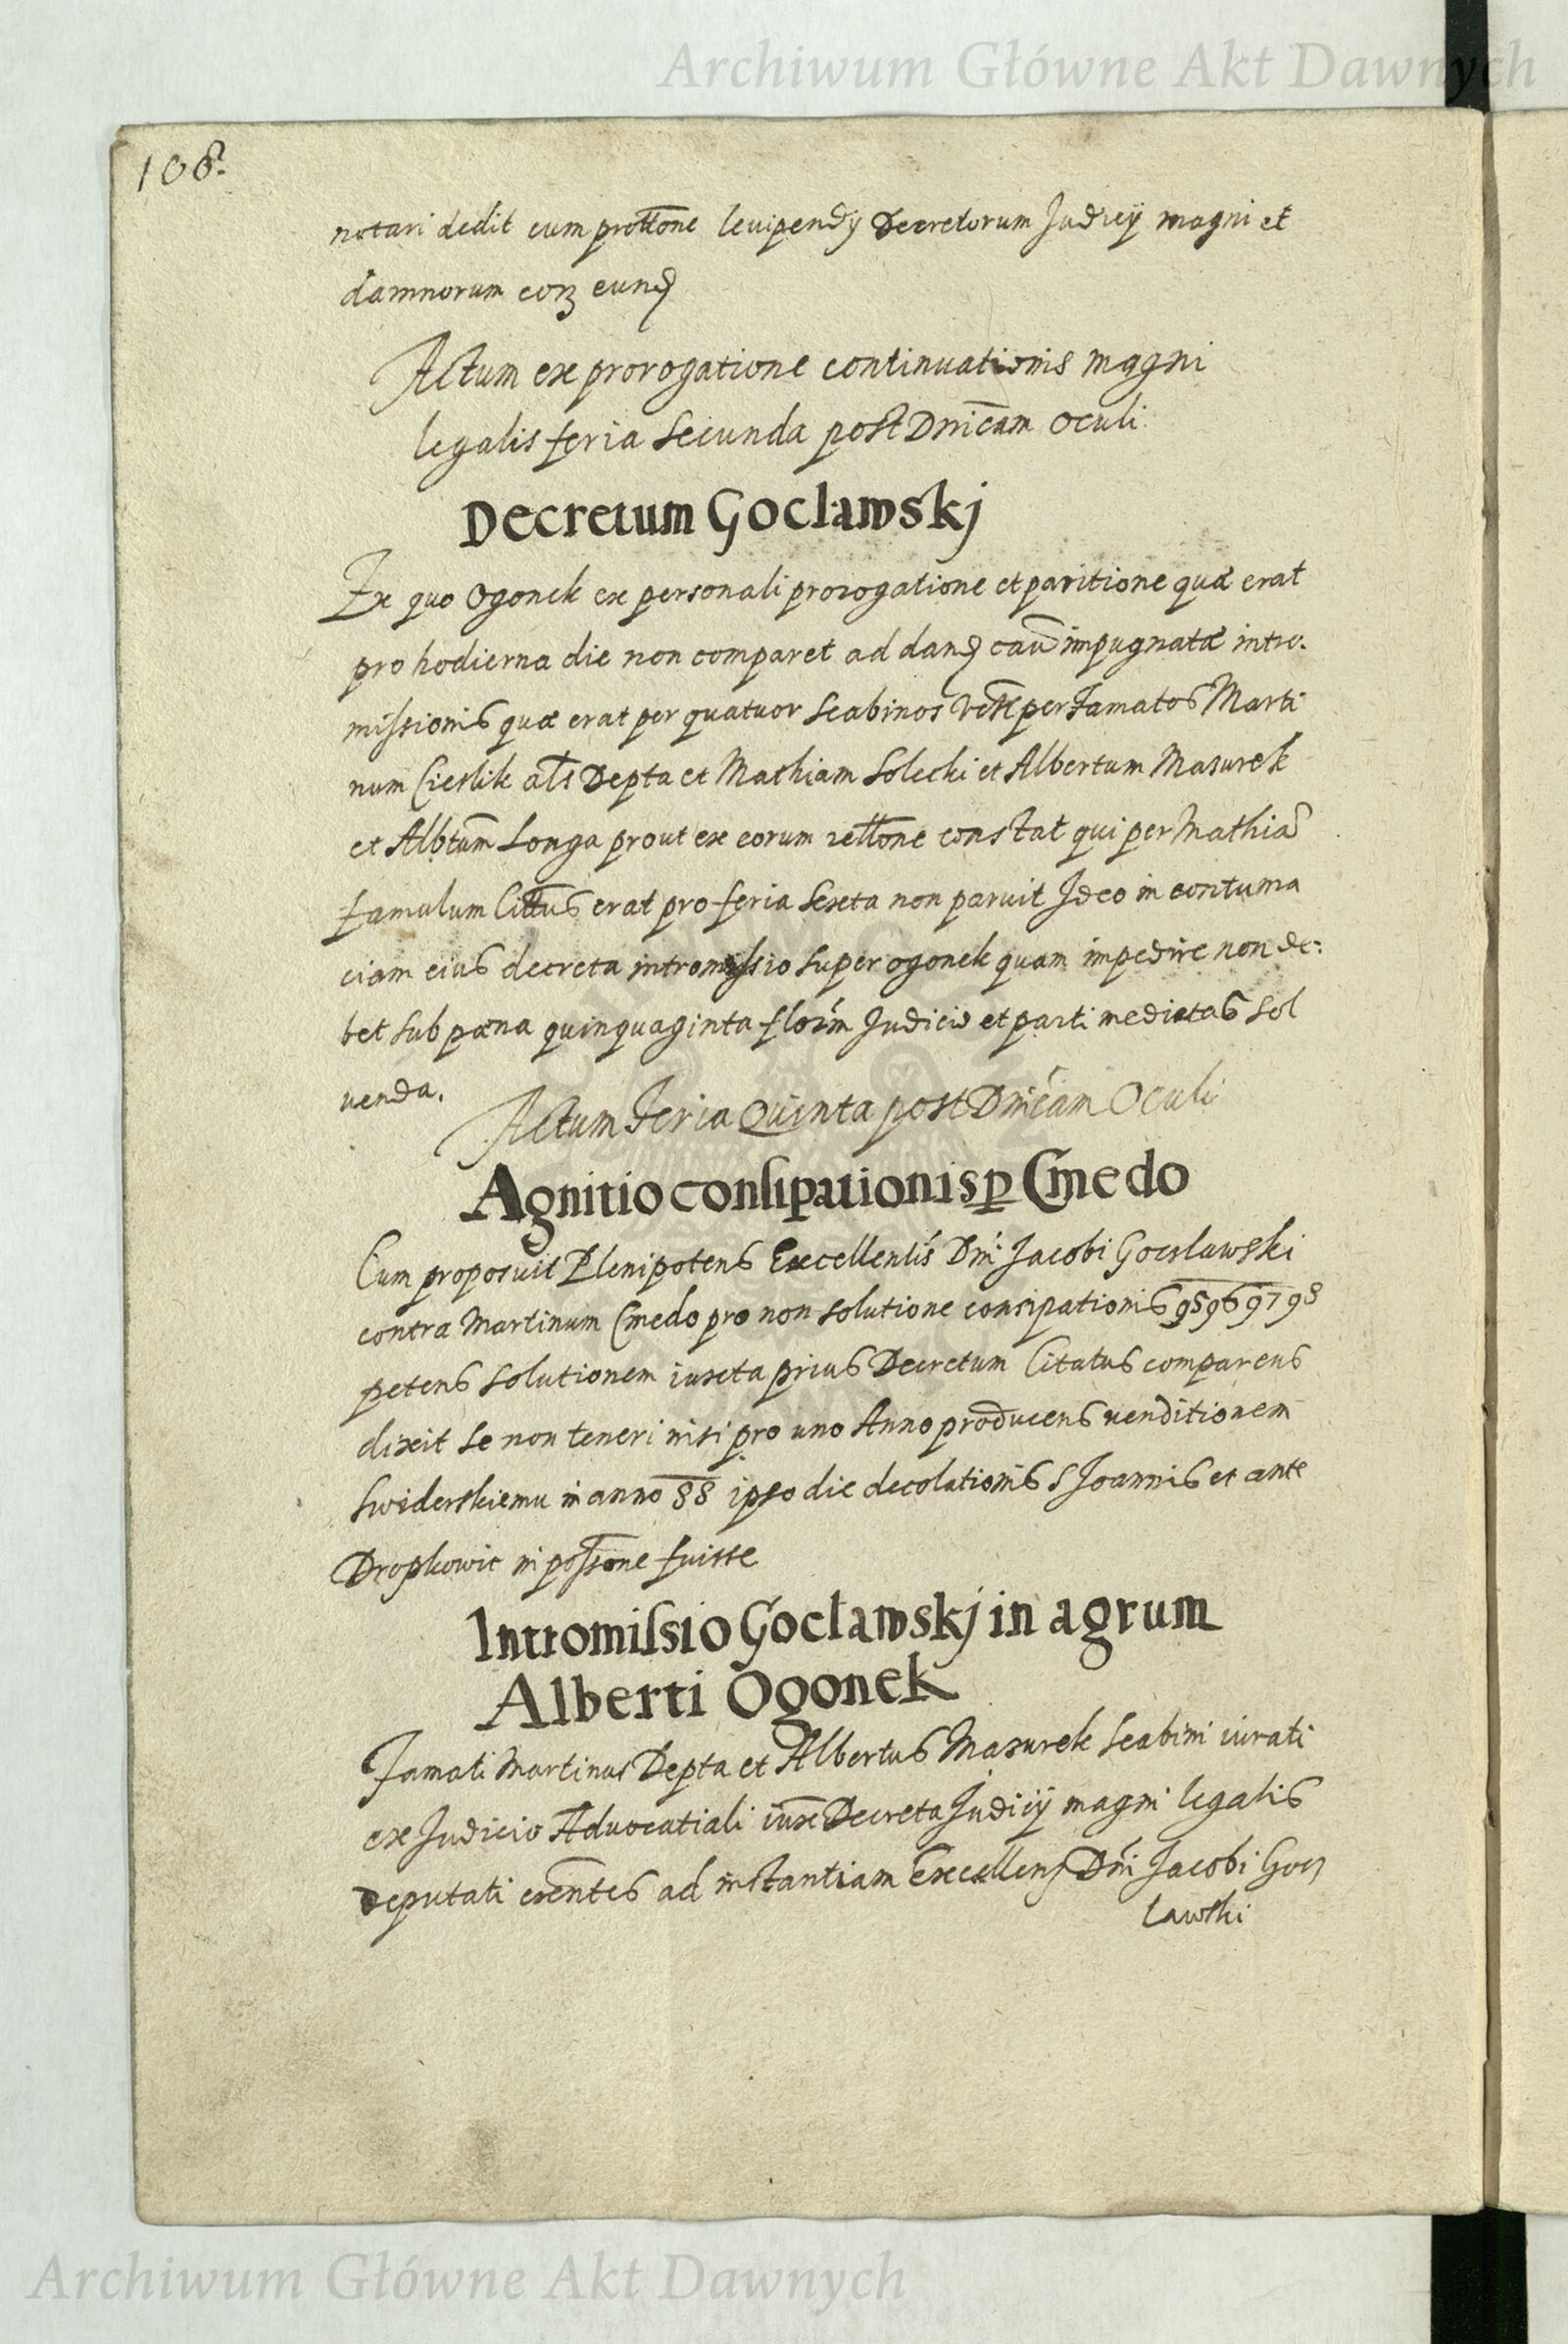 Archiwum Główne Akt Dawnych
108.
notari dedit cum prottone levipendy Decretorum Judicÿ magni et
damnorum eorz eund
Actum ex prorogatione continuationis magni
legalis feria Secunda post Dnicam Oculi
Decretum Gocławskj
Ex quo Ogonek ex personali prorogatione et paritione quæ erat
pro hodierna die non comparet ad dand cau impugnatæ intro.
missionis quæ erat per quatuor Scabinos per Famatos Marti
num Cieslik als Depta et Mathiam Solecki et Albertum Masurek
et Albtum Longa prout ex eorum rettone constat qui per Mathia
famulum Cittus erat pro feria Sexta non paruit Ideo in contuma
ciam eius decreta intromissio super ogonek quam impedire non de:
bet sub pœna quinquaginta florm Judicio et parti medietas sol
uenda.
Actum Feria Quinta post Dnicam Oculi
Agnitio consipationis p Cmedo
Cum proposuit Plenipotens Excellentis Dni Jacobi Gocslawski
contra Martinum Cmedo pro non solutione consipationis 95 96 97 98
petens solutionem iuxta prius Decretum Citatus comparens
dixit se non teneri nisi pro uno Anno producens uenditionem
Swiderskiemu in anno 88 ipso die decolationis S Joannis et ante
Dropkowic in possone fuisse
Intromissio Gocławskj in agrum
Alberti Ogonek
Famati Martinus Depta et Albertus Mazurek Scabini iurati
ex Judicio Aduocatiali iux Decreta Judicÿ magni legalis
deputati exentes ad instantiam Excellens Dni Jacobi Gocs
lawski
Archiwum Główne Akt Dawnych